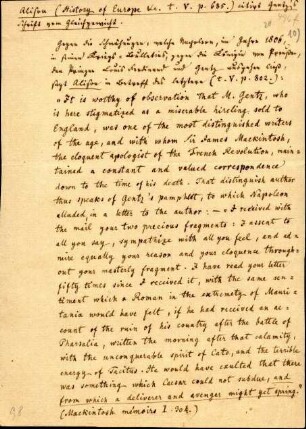 Alison (History of Europe &c. t. V. p. 635.) citirt Gentz's
Schrift vom Gleichgewicht.
19)
Gegen die Schmähungen, welche Napoleon, im Jahre 1806,
in seinen Kriegs-Bülletins, gegen die Königin von Preußen,
den Prinzen Louis Ferdinand und Gentz
sagt Alison in Betreff des letztern (t. V. p. 802.):
"It is worthy of observation that M. Gentz, who
is here stigmatized as a miserable hireling, sold to
England, was one of the most distinguished writers
of the age, and with whom Sir James Mackintosh,
the eloquent apologist of the French Revolution, main-
tained a constant and valued correspondence
down to the time of his death. That distinguish author
thus speaks of Gentz's pamphlet, to which Napoleon
alluded, in a letter to the author: — I received with
the mail your two precious fragments: I assent to
all you say, sympathize with all you feel, and ad-
mire equally your reason and your eloquence through-
out your masterly fragment. I have read your letter
fifty times since I received it, with the same sen-
timent which a Roman in the extremity of Mauri-
tania would have felt, if he had received an ac-
count of the ruin of his country after the battle of
Pharsalia, written the morning after that calamity,
with the unconquerable spirit of Cato, and the terrible
energy of Tacitus. He would have caulted that there
was something which Caesar could not subdue, and
from which a deliverer and avenger might yet spring."
(Mackintosh memoirs I. 304.)
98